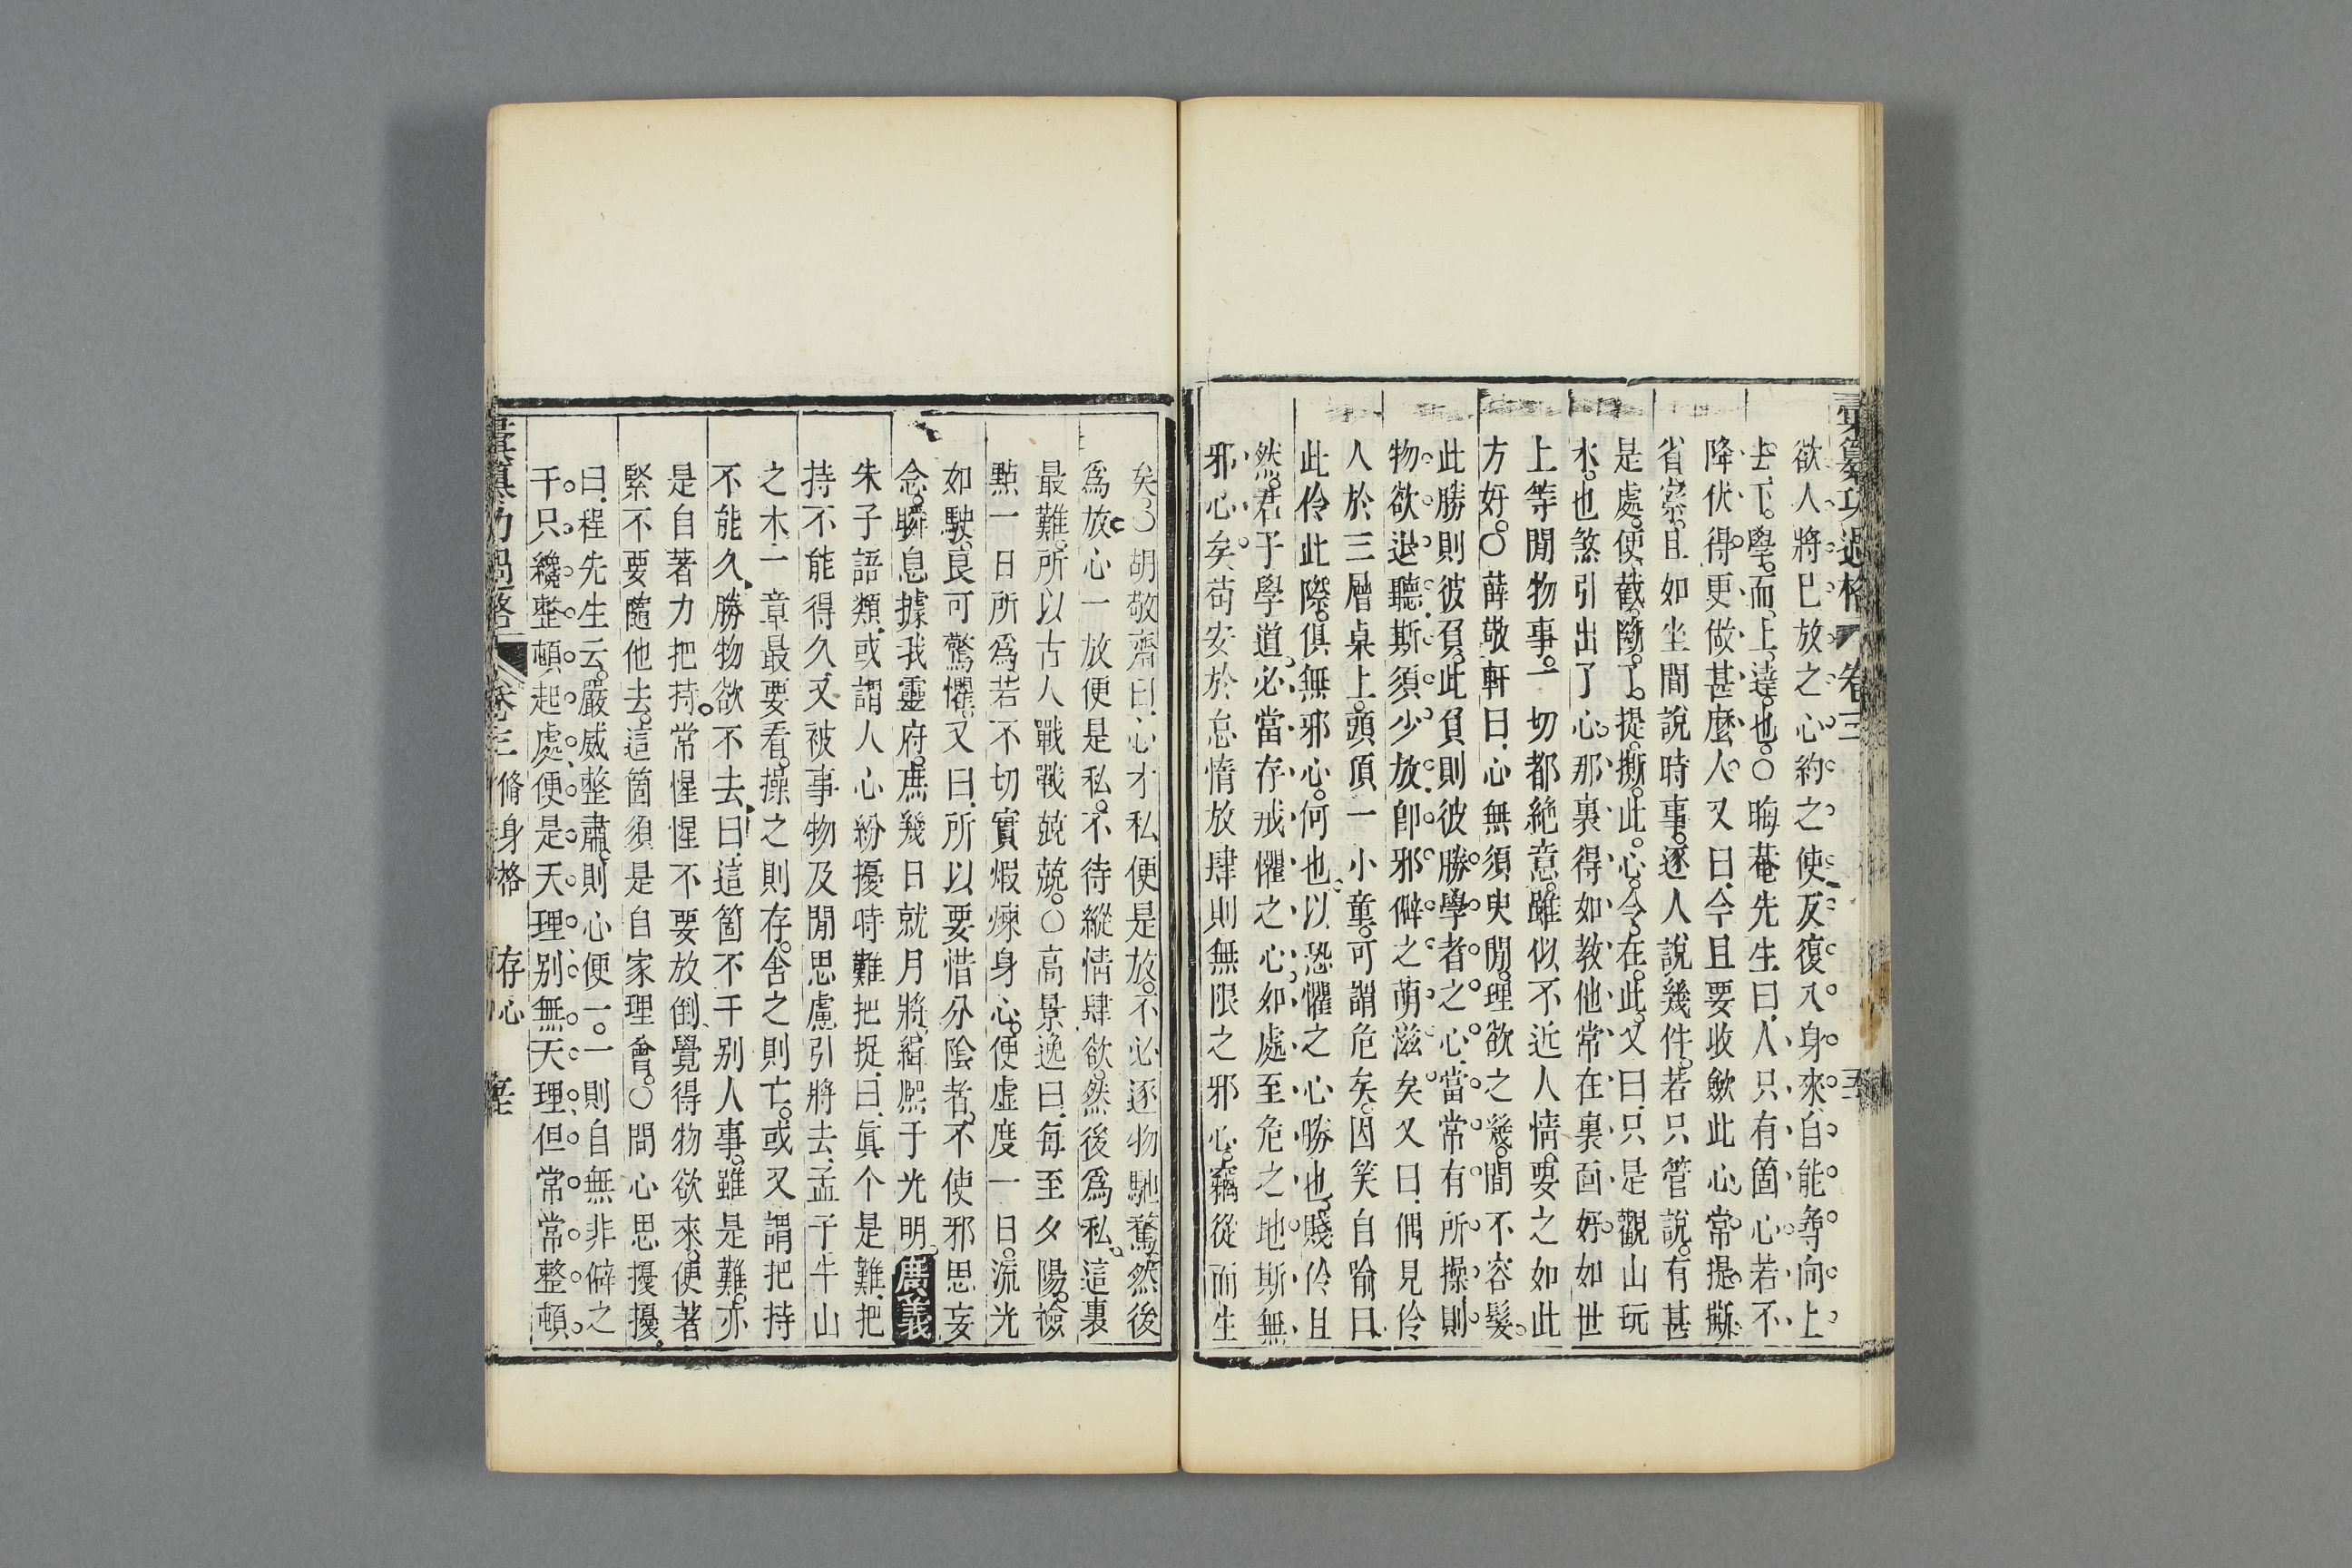 彙纂功過格 卷三
欲人將已放之心約之使反復入身來自能尋向上
去下學而上達也○晦菴先生曰人只有箇心若不
降伏得更做甚麼人又曰今且要收斂此心常提撕
省察且如坐間說時事逐人說幾件若只管說有甚
是處便截斷了提撕此心令在此又曰只是觀山玩
水也煞引出了心那裏得如教他常在裏面好如世
上等閒物事一切都絕意雖似不近人情要之如此
方好○薛敬軒曰心無須臾閒理欲之幾間不容髮
此勝則彼負此負則彼勝學者之心當常有所操則
物欲退聽斯須少放卽邪僻之萌滋矣又曰偶見伶
人於三層桌上頭頂一小童可謂危矣因笑自喻曰
此伶此際俱無邪心何也以恐懼之心勝也賤伶且
然君子學道必當存戒懼之心如處至危之地斯無
邪心矣苟安於怠惰放肆則無限之邪心竊從而生
矣○胡敬齋曰心才私便是放不必逐物馳騖然後
爲放心一放便是私不待縱情肆欲然後爲私這裏
最難所以古人戰戰兢兢○高景逸曰每至夕陽檢
點一日所爲若不切實煆煉身心便虛度一日流光
如駛良可驚懼又曰所以要惜分陰者不使邪思妄
念瞬息據我靈府庶幾日就月將緝熙于光明 廣義
朱子語類或謂人心紛擾時難把捉曰眞个是難把
持不能得久又被事物及閒思慮引將去孟子牛山
之木一章最要看操之則存舍之則亡或又謂把持
不能久勝物欲不去曰這箇不干别人事雖是難亦
是自著力把持常惺惺不要放倒覺得物欲來便著
緊不要隨他去這箇須是自家理會○問心思擾擾
曰程先生云嚴威整肅則心便一一則自無非僻之
干只纔整頓起處便是天理别無天理但常常整頓
彙纂功過格 卷三 脩身格 存心